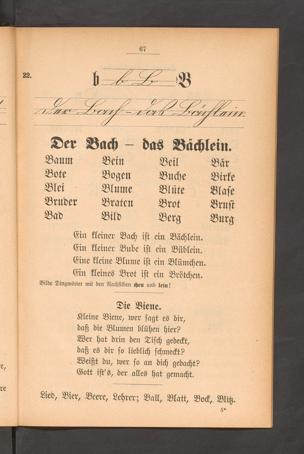 67
22.
b b B B
Der Bach – das Bächlein.
Der Bach – das Bächlein.
Baum Bein Beil Bär
Bote Bogen Buche Birke
Blei Blume Blüte Blase
Bruder Braten Brot Brust
Bad Bild Berg Burg
Ein kleiner Bach ist ein Bächlein.
Ein kleiner Bube ist ein Büblein.
Eine kleine Blume ist ein Blümchen.
Ein kleines Brot ist ein Brötchen.
Bilde Dingwörter mit den Nachsilben chen und lein!
Die Biene.
Kleine Biene, wer sagt es dir,
daß die Blumen blühen hier?
Wer hat drin den Tisch gedeckt,
daß es dir so lieblich schmeckt?
Weißt du, wer so an dich gedacht?
Gott ist's, der alles hat gemacht.
Lied, Bier, Beere, Lehrer; Ball, Blatt, Bock, Blitz.
5*